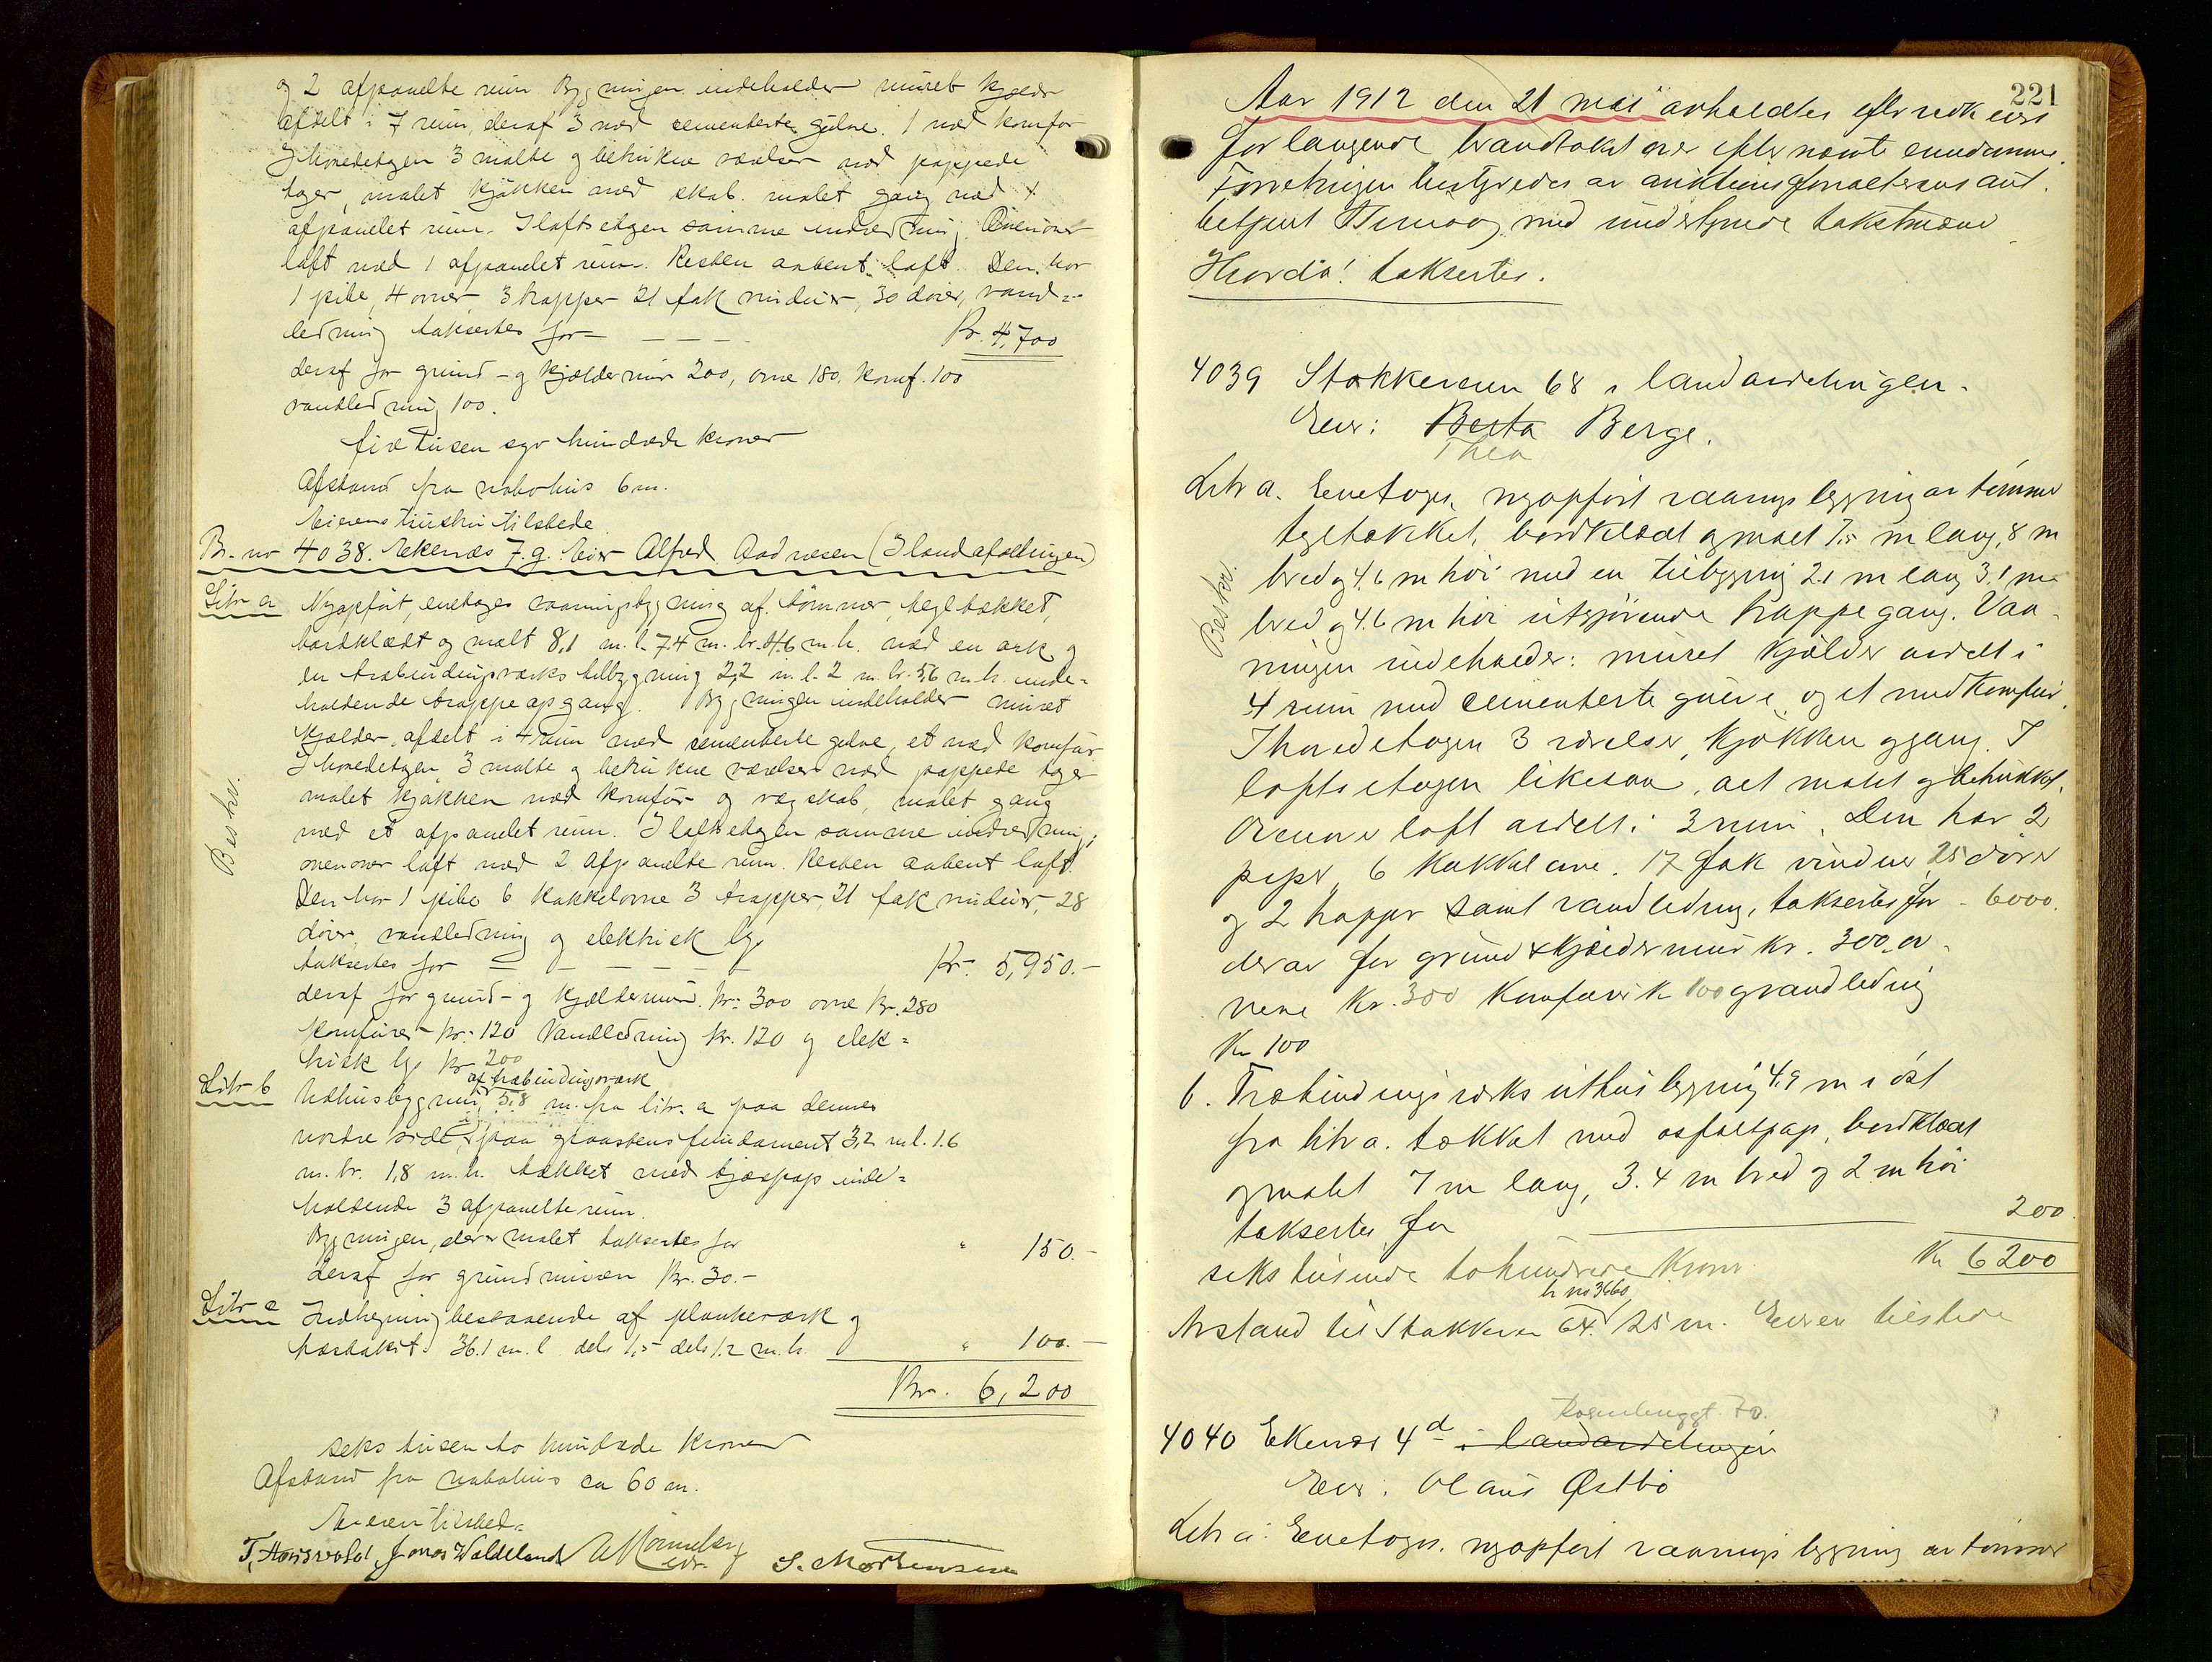 og 2 afpanelte rum Bygningen indeholder muret kjelder
afdelt i 7 rum, deraf 3 med sementerte gulve. 1 med komfør
I hovedetagen 3 malte og betrukne værelser med pappede
tager, malet kjøkken med skab. malet gang med 1
afpanelet rum. I loftsetagen samme indredning. Ovenover
loft med 1 afpanelet rum. Resten aabent loft. Den har
1 pibe, 4 ovner 3 trapper 21 fak vinduer, 30 døre, vand=
ledning taksertes for — — — — Kr. 4,700
deraf for grund- og kjældermur 200, ovne 180. komf. 100
vandledning 100.
fire tusen syv hundrede kroner
Afstand fra nabohus 6 m.
Eierens hustru tilstede
Br. no 4038. Ekenæs 7.g. Eier Alfred Aadnesen (I landafdelingen)
Litr a Nyopført, enetages vaaningsbygning af tømmer, tegltækket,
bordklædt og malt 8,1 m.l. 7.4 m. br. 4.6 m.h. med en ark og
en træbindingsværks tilbygning 2,2 m.l. 2 m. br. 5,6 m.h. inde=
holdende trappeopgang. Bygningen indeholder muret
kjælder, afdelt i 4 rum med sementerte gulve, et med komfør.
I hovedetagen, 3 malte og betrukne værelser med pappede tager
malet kjøkken med komfør og vægskab, malet gang
med et afpanelet rum. I loftsetagen samme indredning;
ovenover loft med 2 afpanelte rum. Resten aabent loft.
Den har 1 pibe 6 kakkelovne 3 trapper, 21 fak vinduer, 28
døre, vandledning og elektrisk lys
taksertes for — — — — — Kr. 5,950.-
deraf for grund- og kjældermur. kr. 300 ovne kr. 280
komfører kr. 120 Vandledning kr. 120 og elek=
trisk lys kr 200
Beskr.
af træbindingsværk
Litr b Udhusbygning 5,8 m. fra litr. a paa dennes
nordre side, paa graastensfundament 3,2 m.l. 1.6
m. br. 1,8 m.h. tækket med tjærepap inde=
holdende 3 afpanelte rum.
Bygningen, der er malet taksertes for " 150.-
deraf for grundmuren kr. 30.-
Litr c Indhegning bestaaende af plankeværk og
36.1 m.l. dels 1,5 dels 1.2 m.h. " 100.-
Kr. 6,200
seks tusen to hundrede kroner
Afstand fra nabohus ca 60 m.
Eieren tilsted=
Jonas Waldeland S. Mortensen
221
Aar 1912 den 21 mai avholdtes efter rekvisis
forlangende brandtakst over efternævnte eiendomme.
Forretningen bestyredes av auktionsforvalterens aut.
betjent med undertegnede takstmænd
Hvorda! taksertes.
4039 Stokkeveien 68 i landavdelingen.
Eier: Berta Berge.
Thea
Litr a. Enetages, nyopført vaaningsbygning av tømmer
tegltækket, bordklædt og malet 7.5 m lang, 8 m
bred og 4.6 m høi med en tilbygning 2.1 m lang 3.1 m
bred og 4.6 m høi utgjørende trappegang. Vaa-
ningen indeholder: muret kjælder avdelt i
4 rum med cementerte gulve og et med komfur.
I hovedetagen 3 værelser, kjøkken og gang. I
loftsetagen likesaa, alt malet og betrukket.
Ovenover loft avdelt i 3 rum. Den har 2
piper, 6 kakkelovne. 17 fak vinduer 25 dører
og 2 trapper samt vandledning, taksertes for - 6000.
derav for grund & kjældermur kr. 300, ov-
nene kr. 300 Komfurer k 100 og vandledning
Kr 100
Beskr.
b. Træbindingsværks uthusbygning 4.9 m i øst
fra litr a. tækket med asfaltpap, bordklædt
og malet 7 m lang, 3.4 m bred og 2 m høi
taksertes for 200.
Kr 6200
seks tusinde to hundrede Kroner
br no 3660
Avstand til Stokkevei 64. 25 m. Eieren tilstede
Rosenberggt. 70.
4040 Ekenæs 4d i landavdelingen
Eier: Olaus Østbø
Litr a. Enetages. nyopført vaanings bygning av tømmer